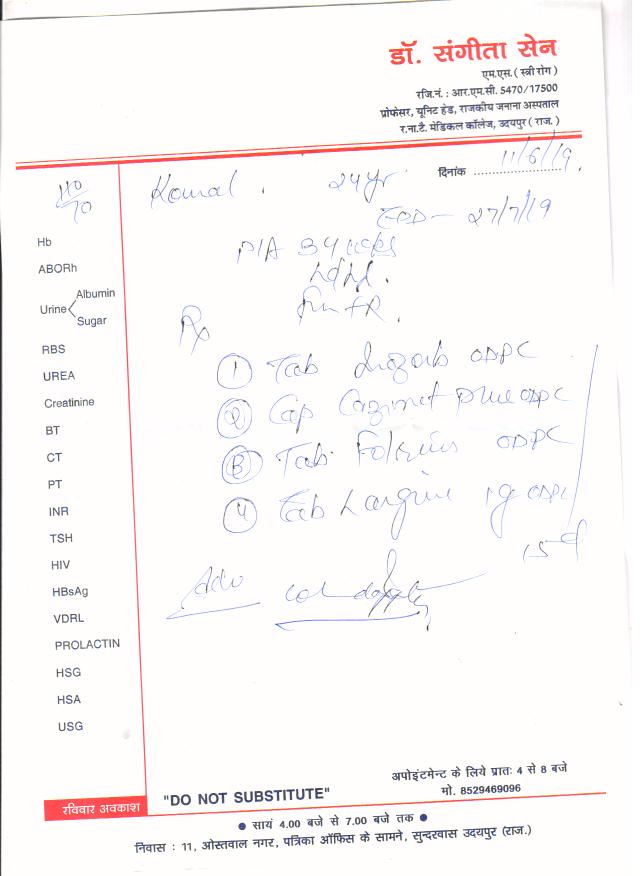 डॉ. संगीता सेन
एम.एस. ( स्त्री रोग )
रजि.नं. : आर.एम.सी. 5470/17500
प्रोफेसर, यूनिट हेड, राजकीय जनाना अस्पताल
र.ना.टै. मेडिकल कॉलेज, उदयपुर ( राज. )
दिनांक 11/6/19
110/70
Komal . 24 yr.
EDD - 27/7/19
P/A 34
FR.
Hb
ABORh
Urine Albumin
Sugar
RBS
UREA
Creatinine
BT
CT
PT
INR
TSH
HIV
HBsAg
VDRL
PROLACTIN
HSG
HSA
USG
Rx
① Tab ODPC
② Cap ODPC
③ Tab. ODPC
④ Tab ODPC
15 d
Adv
रविवार अवकाश
"DO NOT SUBSTITUTE"
अपोइंटमेन्ट के लिये प्रातः 4 से 8 बजे
मो. 8529469096
● सायं 4.00 बजे से 7.00 बजे तक ●
निवास : 11, ओस्तवाल नगर, पत्रिका ऑफिस के सामने, सुन्दरवास उदयपुर (राज.)